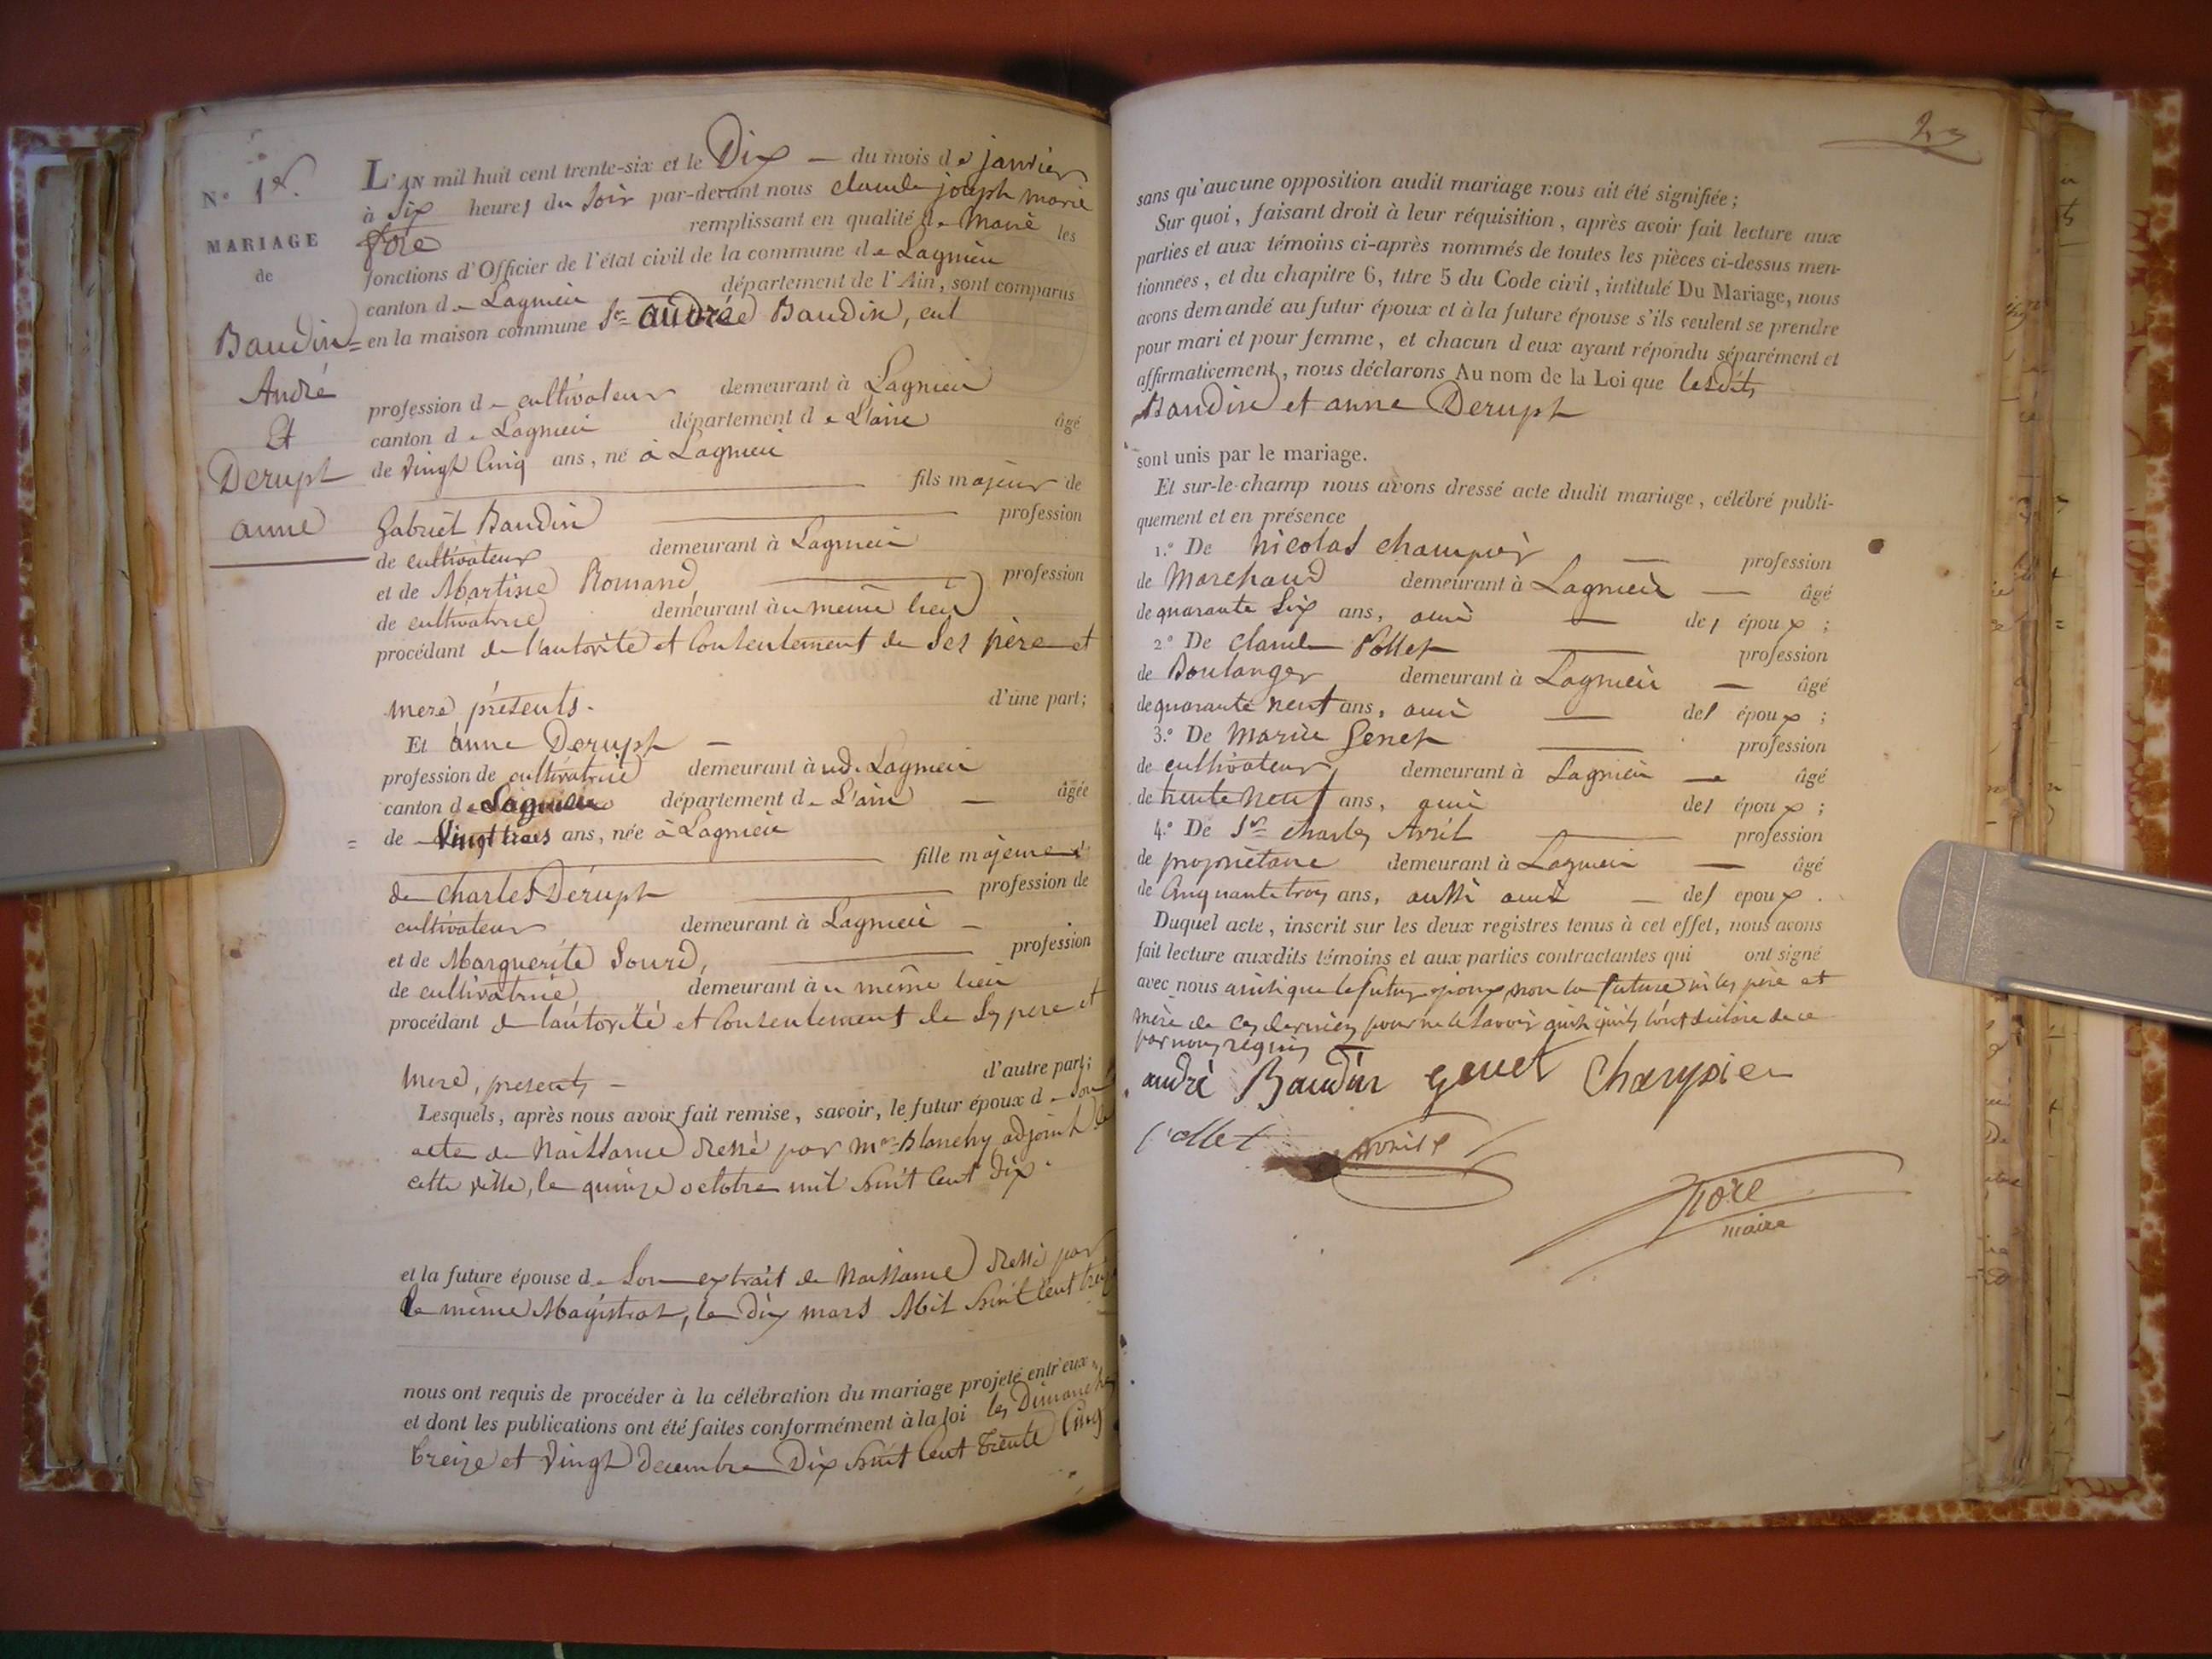 N° 1er.
MARIAGE
de
Baudin
André
Et
Derupt
anne
L'AN mil huit cent trente-six et le Dix — du mois de janvier
à Six heures du Soir par-devant nous claude joseph marie
fore remplissant en qualité de Maire les
fonctions d'Officier de l'état civil de la commune de Lagnieu
canton de Lagnieu département de l'Ain, sont comparus
en la maison commune Sr André Baudin, cul
profession de cultivateur demeurant à Lagnieu
canton de Lagnieu département de L'ain âgé
de vingt Cinq ans, né à Lagnieu
fils majeur de
Gabriel Baudin profession
de cultivateur demeurant à Lagnieu
et de Martine Romand, profession
de cultivatrice demeurant au meme lieu
procédant de l'autorité et Consentement de Ses père et
mere, présents. d'une part;
Et anne Derupt —
profession de cultivatrice demeurant à ud. Lagnieu
canton de Lagnieu département de L'ain — âgée
= de Vingt trois ans, née à Lagnieu
fille majeure
de Charles Derupt profession de
cultivateur demeurant à Lagnieu —
et de Marguerite Sourd, profession
de cultivatrice demeurant au même lieu
procédant de l'autorité et Consentement de Ses pere et
Mere, presents — d'autre part;
Lesquels, après nous avoir fait remise, savoir, le futur époux de Son
acte de Naissance dressé par Mr Blanchy adjoint de
cette ville, le quinze octobre mil huit Cent dix.
et la future épouse de Son extrait de Naissance dressé par
le même Magistrat, le dix mars Mil huit Cent treize
nous ont requis de procéder à la célébration du mariage projeté entr'eux,
et dont les publications ont été faites conformément à la loi les Dimanches
treize et vingt Decembre Dix huit Cent trente Cinq
2
sans qu'aucune opposition audit mariage nous ait été signifiée;
Sur quoi, faisant droit à leur réquisition, après avoir fait lecture aux
parties et aux témoins ci-après nommés de toutes les pièces ci-dessus men-
tionnées, et du chapitre 6, titre 5 du Code civil, intitulé Du Mariage, nous
avons demandé au futur époux et à la future épouse s'ils veulent se prendre
pour mari et pour femme, et chacun d'eux ayant répondu séparément et
affirmativement, nous déclarons Au nom de la Loi que lesdits
Baudin et anne Derupt
sont unis par le mariage.
Et sur-le-champ nous avons dressé acte dudit mariage, célébré publi-
quement et en présence
1.° De Nicolas Champier — profession
de Marchand demeurant à Lagnieu — âgé
de quarante Six ans, ami — des époux;
2° De Claude Pollet profession
de Boulanger demeurant à Lagnieu — âgé
de quarante neuf ans, ami — des époux;
3.° De Marie Genet profession
de cultivateur demeurant à Lagnieu — âgé
de trente Neuf ans, ami des époux;
4.° De Sr Charles Avril profession
de propriétaire demeurant à Lagnieu — âgé
de Cinquante trois ans, aussi ami — des epoux.
Duquel acte, inscrit sur les deux registres tenus à cet effet, nous avons
fait lecture auxdits témoins et aux parties contractantes qui ont signé
avec nous ainsi que le futur epoux, non la future ni les père et
mère de ces derniers pour ne le Savoir ainsi qu'ils l'ont déclaré de ce
par nous requis
andré Baudin genet Champier
Pollet Avril
fore
maire